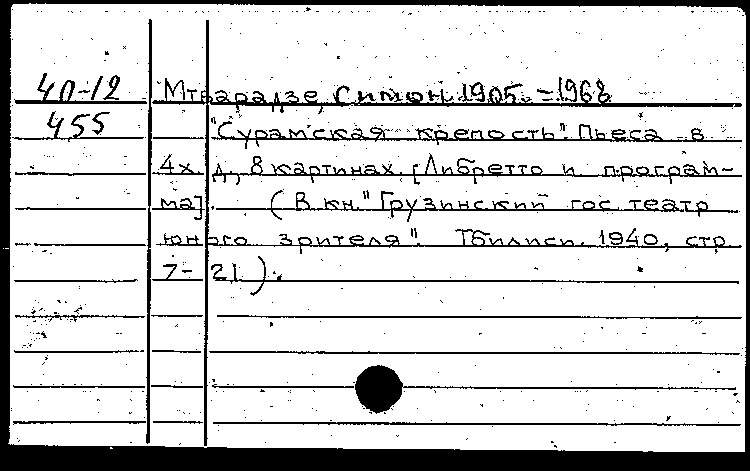 40-12 Мтварадзе, Симон 1905.-1968
455 "Сурамская крепость". Пьеса в
4х д, 8 картинах. [Либретто и програм-
ма]. (В кн." Грузинский гос. театр
юного зрителя". Тбилиси. 1940, стр
7-21).